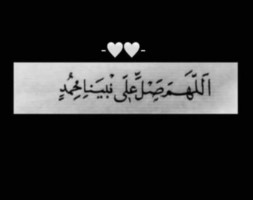 -🤍🤍-
اَللّٰهُمَّ صَلِّ عَلَى نَبِيِّنَا مُحَمَّدٍ